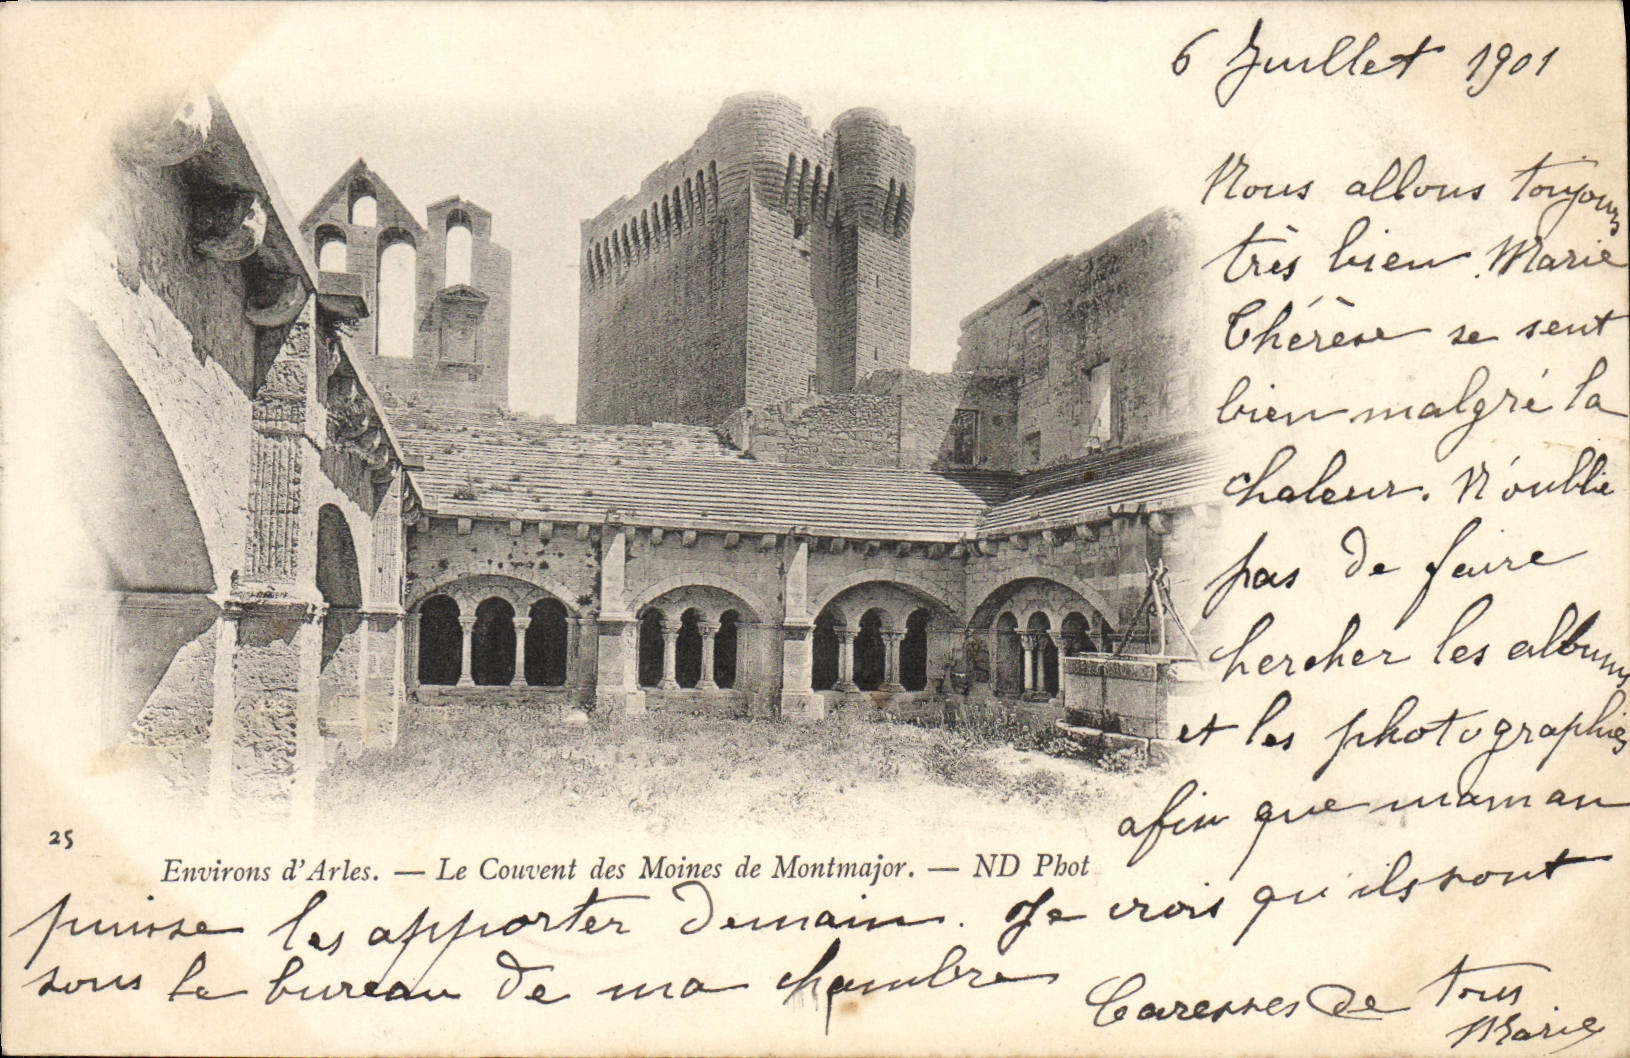 6 Juillet 1901
Nous allons toujours
très bien. Marie
Thérèse se sent
bien malgré la
chaleur. N'oublie
pas de faire
chercher les albums
et les photographies
afin que maman
25
Environs d'Arles. — Le Couvent des Moines de Montmajor. — ND Phot
puisse les apporter demain. Je crois qu'ils sont
sous le bureau de ma chambre
Caresses de tous
Marie